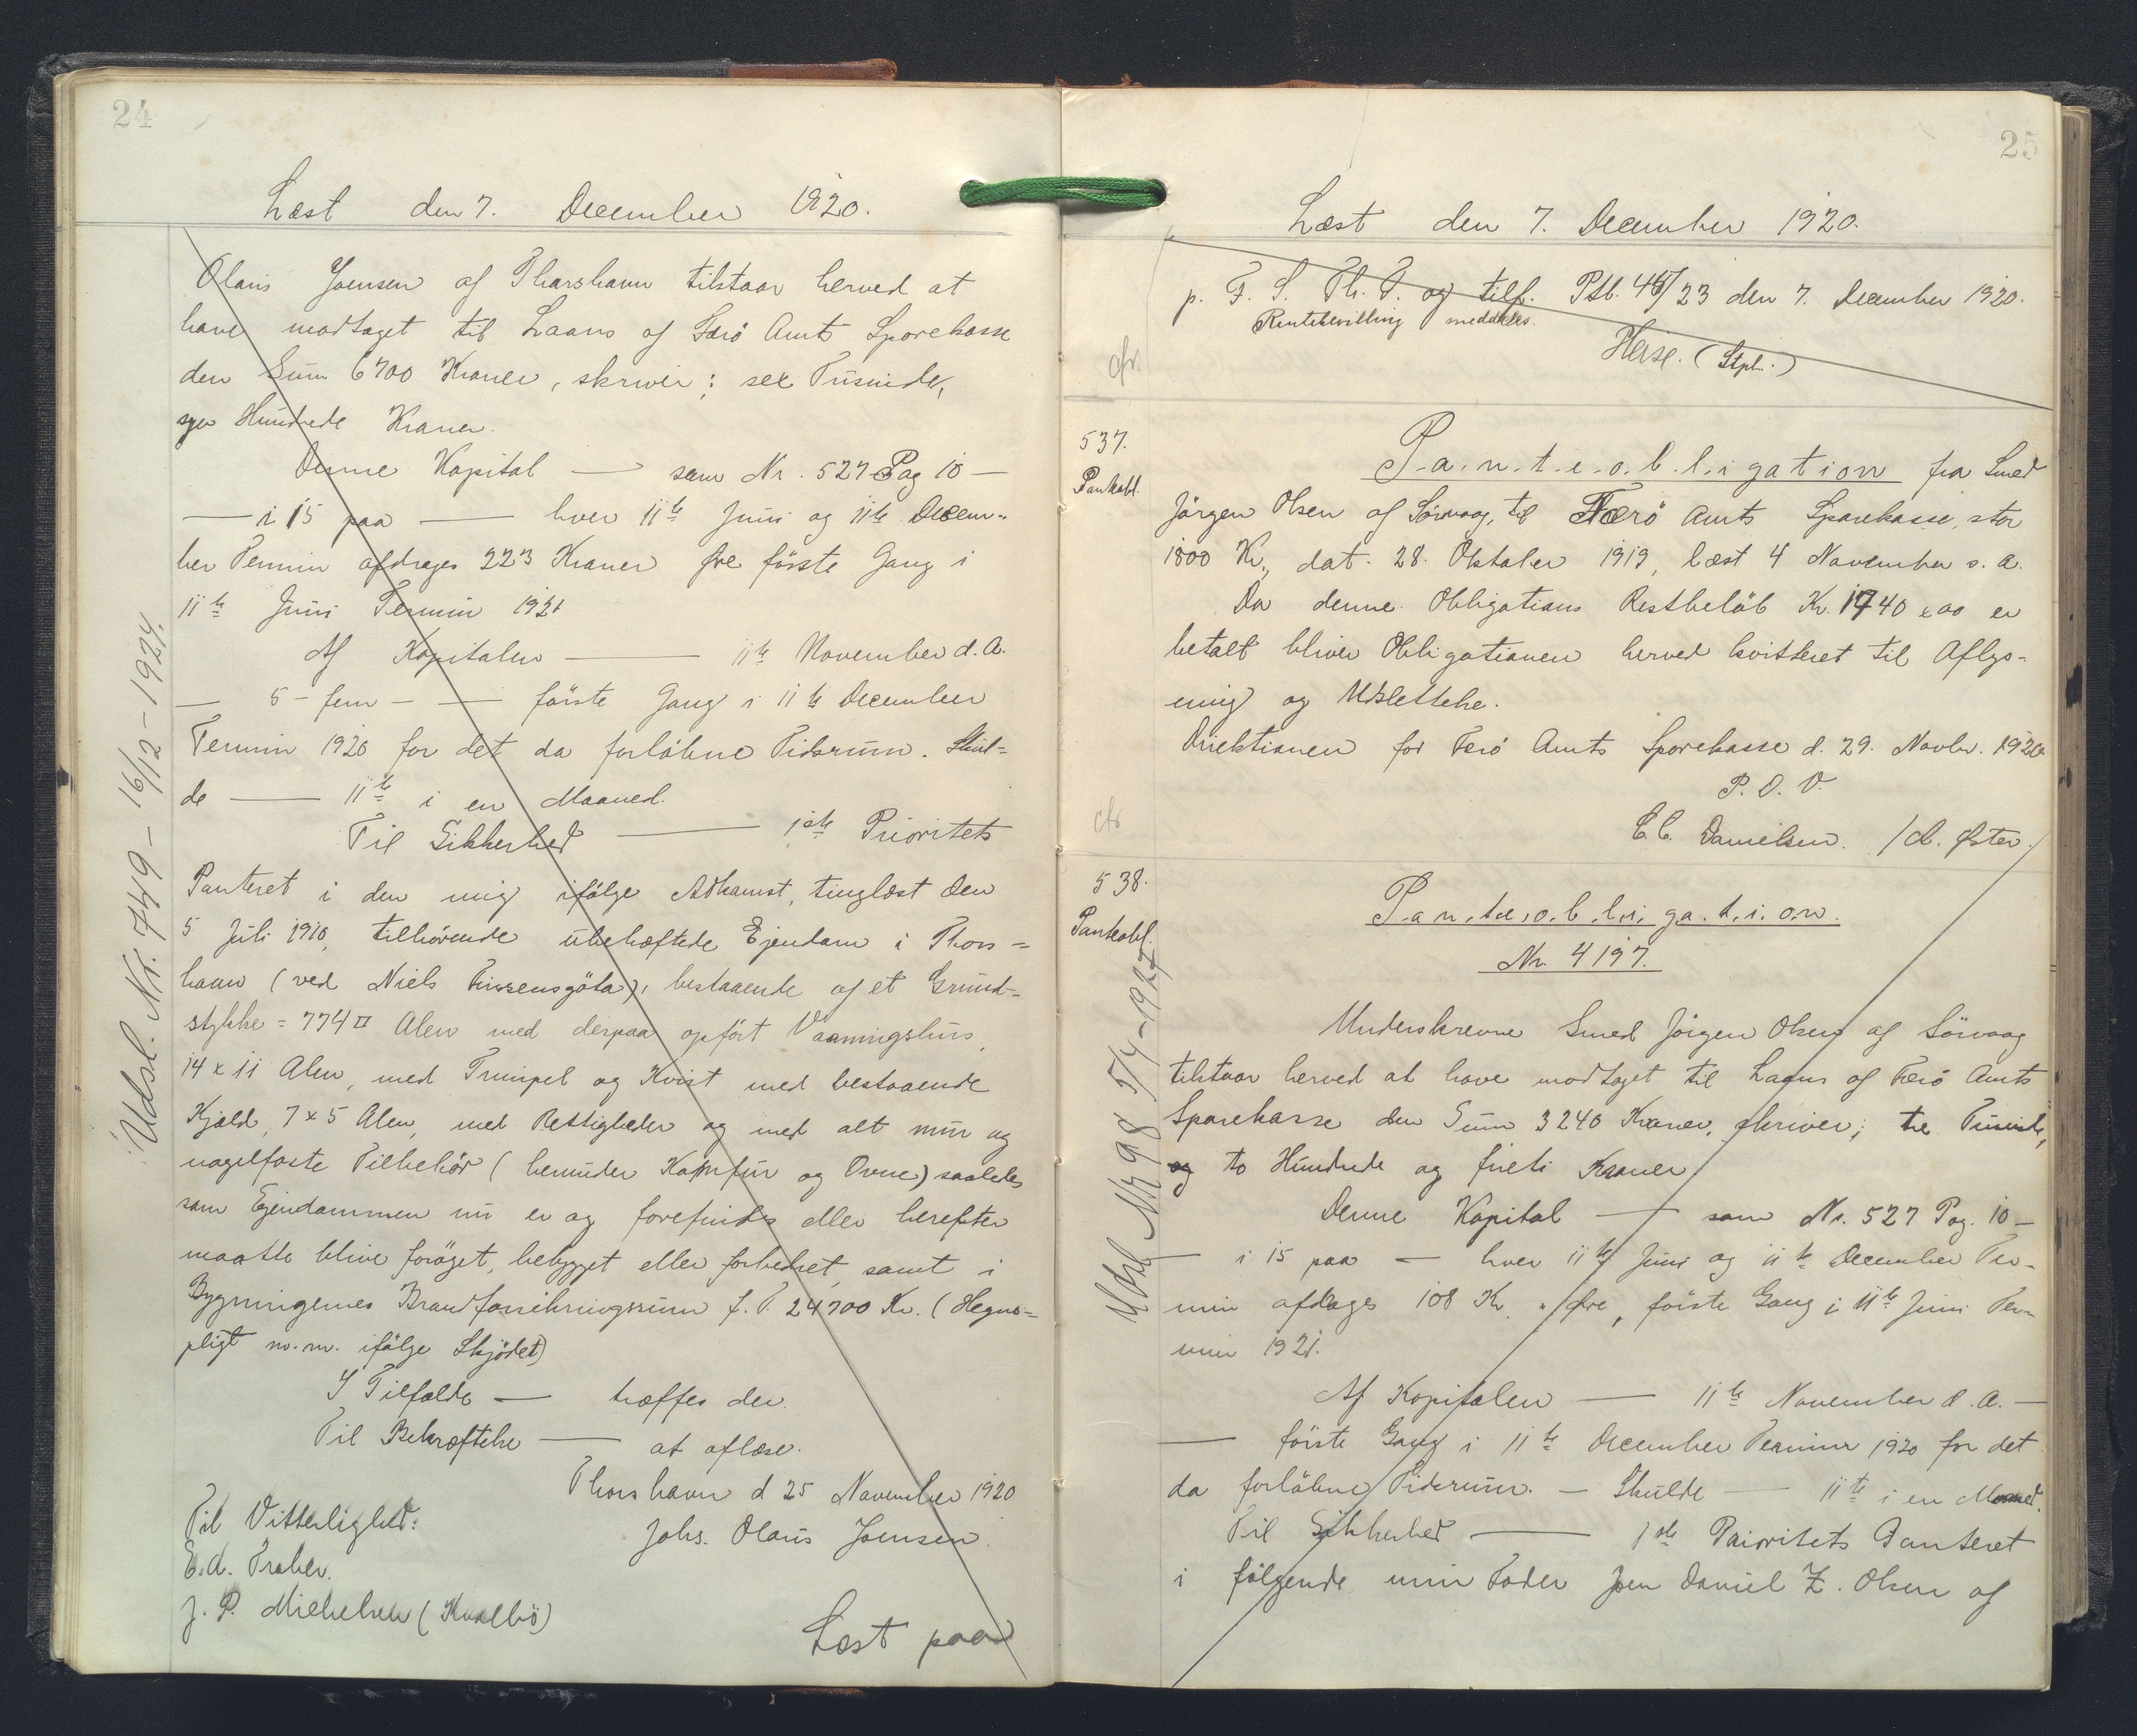 24
Læst den 7. December 1920.
Olaus Joensen af Thorshavn tilstaar herved at
have modtaget til Laans af Færö Amts Sparekasse
den Sum 6700 Kroner, skriver: sex Tusinde,
syv Hundrede Kroner.
Denne Kapital — som Nr. 527 Pag 10 —
— i 15 paa — hver 11te Juni og 11te Decem-
ber Termin afdrages 223 Kroner Øre förste Gang i
11te Juni Termin 1921
Af Kapitalen — 11te November d. A.
— 5 - fem - — förste Gang i 11te December
Termin 1920 for det da forlöbne Tidsrum. Skul=
de — 11te i en Maaned.
Til Sikkerhed — 1ste Prioritets
Panteret i den mig ifölge Adkomst, tinglæst den
5 Juli 1910, tilhörende ubehæftede Ejendom i Thors=
havn (ved Niels Finsensgöta), bestaaende af et Grund-
stykke = 774 □ Alen med derpaa opfört Vaaningshus,
14 x 11 Alen, med Trempel og Kvist med bestaaende
Kjæld, 7 x 5 Alen, med Rettigheder og med alt mur og
nagelfaste Tilbehör (herunder Komfur og Ovne) saaledes
som Ejendommen nu er og forefindes eller herefter
maatte blive foröget, bebygget eller forbedret samt i
Bygningernes Brandforsikringssum f. T. 24700 Kr. (Hegns=
pligt m. m. ifölge Skjödet)
I Tilfælde — træffes der.
Til Bekræftelse — at aflæse.
Thorshavn d 25 November 1920
Til Vitterlighed:
Johs. Olaus Joensen.
J. P. Michelsen (Kvalbö)
Læst paa
Udsl. Nr. 749 - 16/12 - 1924.
25
Læst den 7. December 1920.
p. F. S. Th. T. og tilf. Ptb. 45/23 den 7. December 1920.
Rentebevilling meddeles.
Heise. (Stpl.)
cfr.
537.
Pantobl.
P.a.n.t.e.o.b.l.i.gation fra Smed
Jörgen Olsen af Sörvaag, til Færö Amts Sparekasse, stor
1800 Kr., dat. 28. Oktober 1919, læst 4 November s. A.
Da denne Obligations Restbelöb Kr. 1740 x 00 er
betalt bliver Obligationen herved kvitteret til Aflys=
ning og Udslettelse.
Direktionen for Færö Amts Sparekasse d. 29. Novbr. 1920
P. D. V.
C. C. Danielsen. / M. Öster.
cfr
538.
Pantobl.
P.a.n.t.e.o.b.l.i.ga.t.i.o.n.
Nr. 4197.
Underskrevne Smed Jörgen Olsen af Sörvaag
tilstaar herved at have modtaget til Laans af Færö Amts
Sparekasse den Sum 3240 Kroner, skriver; tre Tusinde,
og to Hundrede og fireti Kroner
Denne Kapital — som Nr. 527 Pag. 10 —
— i 15 paa — hver 11te Juni og 11te December Ter-
min afdrages 108 Kr. " Øre, förste Gang i 11te Juni Ter-
min 1921.
Af Kapitalen — 11te November d. A. —
— förste Gang i 11te December Termin 1920 for det
da forlöbne Tidsrum. — Skulde — 11te i en Maaned.
Til Sikkerhed — 1ste Prioritets Panteret
i fölgende min Fader Joen Daniel Z. Olsen af
Udsl. Nr 98 5/4 - 1927